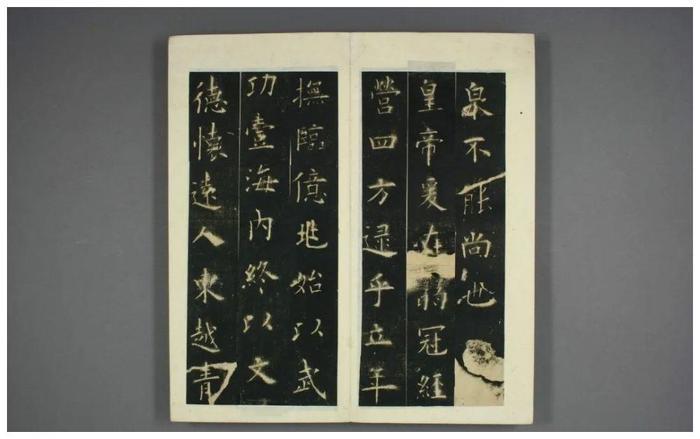 泉不能尚也
皇帝爰在弱冠經
營四方逮乎立年
撫臨億兆始以武
功壹海內終以文
德懷遠人東越青